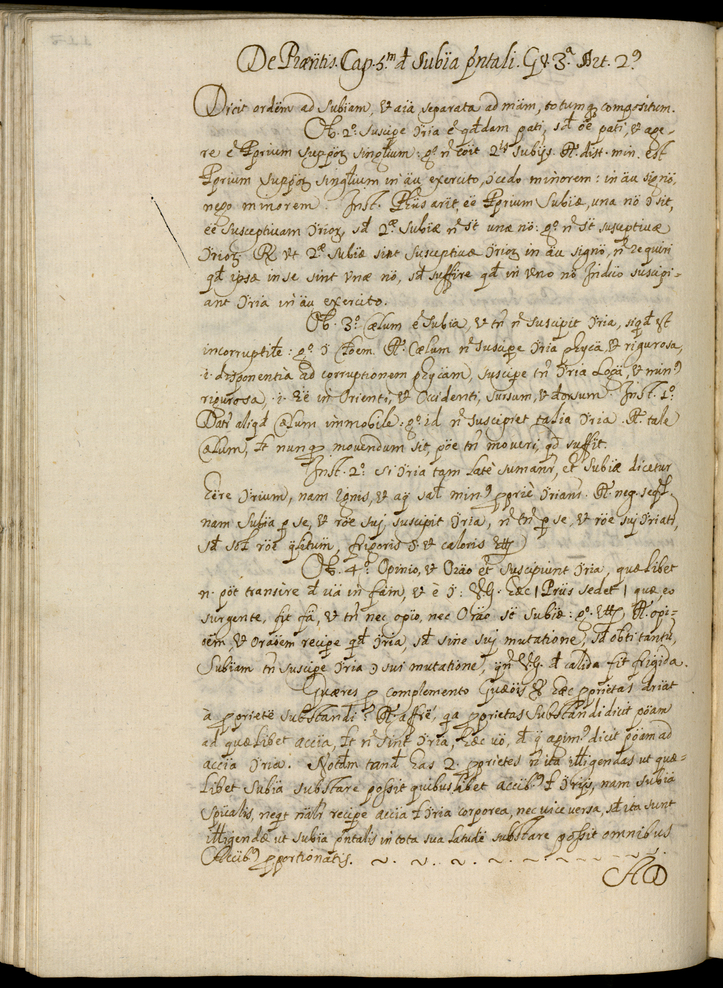 De Præntis. Cap. 5.m d Subia pntali. Qu. 3.a Art. 2.o
Dicit ordem ad Subiam, & aia separata ad miam, totumq compositum.
Ob. 2.o Suscipe Dria e qddam pati, sd oe pati, & age-
re e Pprium suppoz singlium: go n coit 2is Subijs. R. dist. min. est
Pprium suppoz singlium in au exercito, ocedo minorem: in au signo,
nego minorem. Inst. Prius arit ee Pprium Subiæ, una no Dsit,
ee susceptivam Drioz, sd 2æ Subiæ n st unæ no: go n st susceptivæ
Drioz. R. ut 2æ Subiæ sint susceptivæ Drioz in au signo, n requiri
qd ipsæ in se sint Unæ no, sd suffire qd in uno no Indiuo suscipi-
ant Dria in au exercito.
Ob. 3.o Cælum e Subia, & tn n suscipit Dria, siqd est
incorruptile: go D Poem. R. Cælum n suscipe Dria phyca, & rigurosa,
.i. disponentia ad corruptionem phycam, suscipe tn Dria Loca, & min9
rigurosa, .i. ee in Orienti, & Occidenti, sursum, & deorsum. Inst. 1.o
Datr aliqd Cælum immobile: go id n suscipret talia Dria. R. tale
Cælum, Et nunq movendum sit, poe tn moveri, qd suffit.
Inst. 2.o Si Dria tqm Late sumanr, et Subiæ dicetur
Eere Drium, nam Ignis, & aq salt min9 pprie Driant. R. neg. seql.
nam Subia p se, & roe suj suscipit Dria, n tn p se, & roe suj Driatr,
sd sol roe qlitum, frigoris & caloris
Ob. 4.o Opinio, & Orão et suscipiunt Dria, quælibet
n. pot transire d va in fam, & e D. V.g. Eæc | Petrus sedet | quæ eo
surgente, fit fa, & tn nec opio, nec Orão st Subiæ: go R. opi-
oem, & Orãoem recipe qd Dria, sd sine suj mutatione, sd obti tantu,
Subiam tn suscipe Dria D sui mutatione, V.g. d calida fit frigida.
Quæres p complemento Quæois Eæc pprietas driat
à pprieté substandi? R. affré, qa pprietas Substandi dicit poam
ad quælibet accia, Et n sint Dria, Eæc vo, d q agim9 dicit poam ad
accia Dria. Notdm tand Eas 2 pprietes n ita illigendas ut quæ-
Libet Subia substare possit quibuslibet accib9, & Drijs, nam Subia
Spicalis, neqt nalr recipe accia & Dria corporea, nec vice versa, sd ita sunt
illigendæ ut Subia pntalis in tota sua latude substare possit omnibus
Accib9 pportionatis.
AD